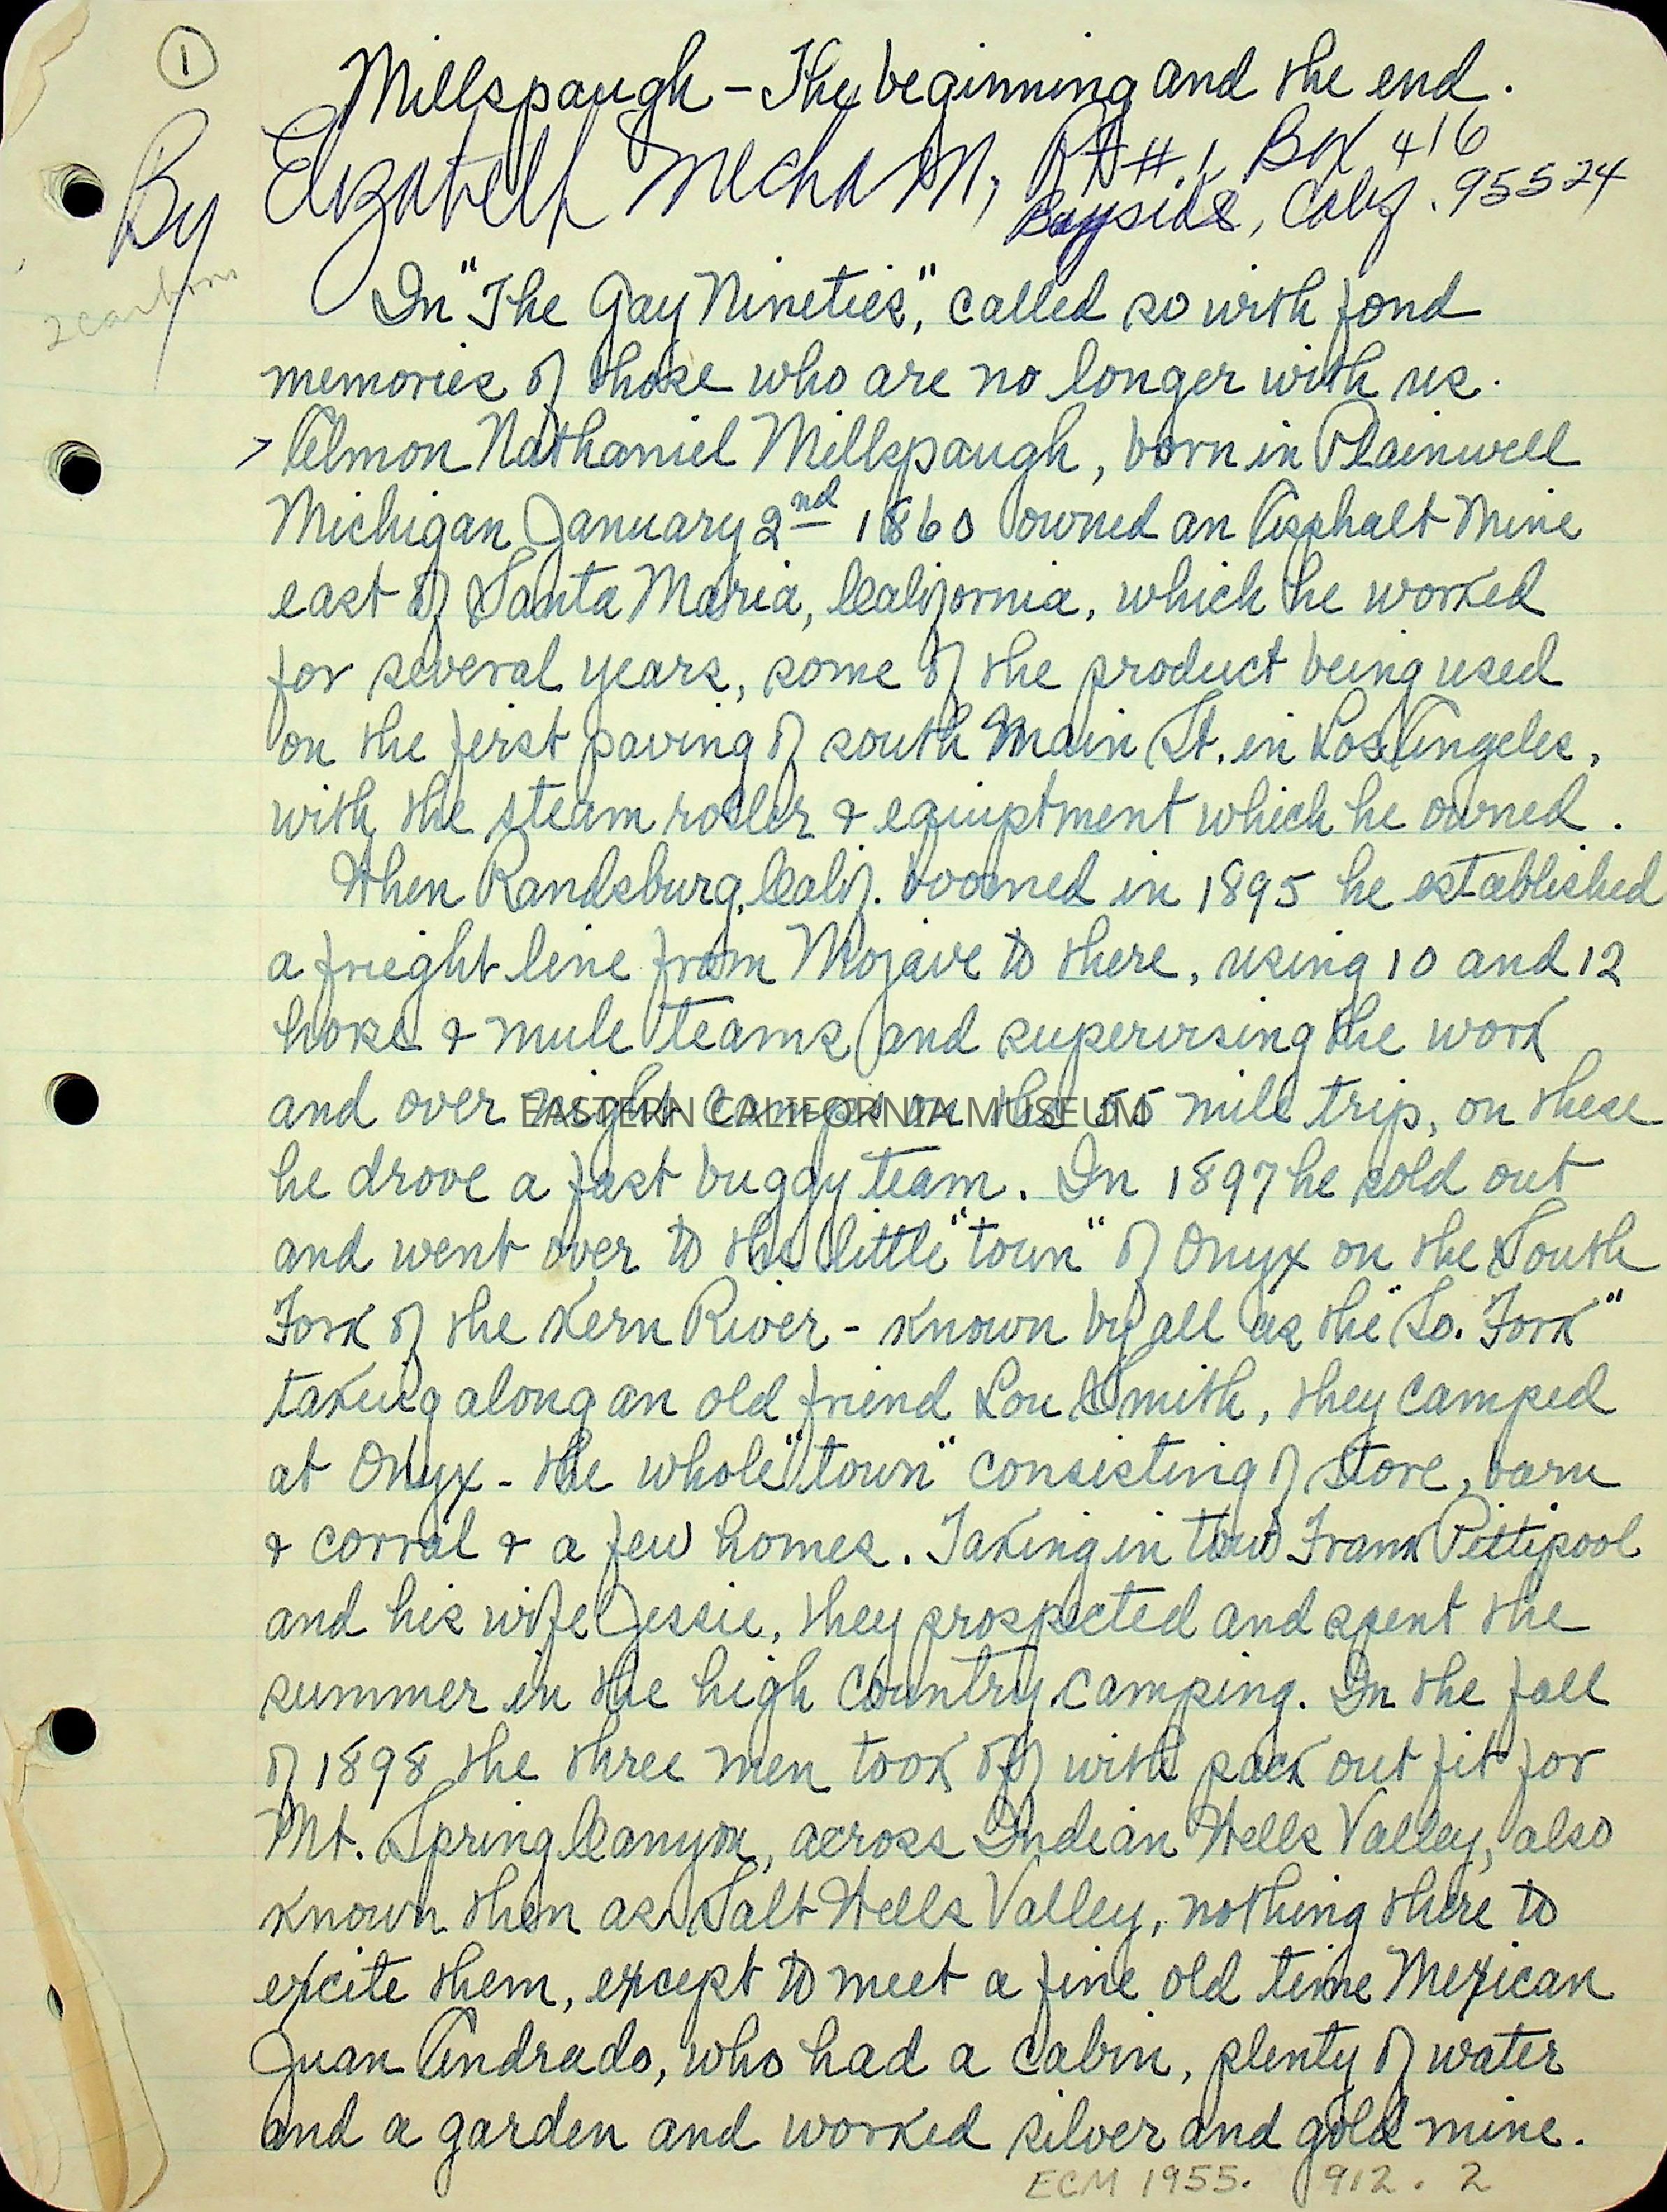 1
Millspaugh – The beginning and the end.
By Elizabeth Mecham, Rt #1, Box 416
Bayside, Calif. 95524
2 carbons
In "The Gay Nineties", called so with fond
memories of those who are no longer with us.
> Almon Nathaniel Millspaugh, born in Plainwell
Michigan January 2nd 1860 owned an Asphalt Mine
east of Santa Maria, California, which he worked
for several years, some of the product being used
on the first paving of south Main St. in Los Angeles,
with the steam roller & equiptment which he owned.
When Randsburg, Calif. boomed in 1895 he established
a frieght line from Mojave to there, using 10 and 12
horse & mule teams and supervising the work
and over night camps on the 55 mile trip, on these
EASTERN CALIFORNIA MUSEUM
he drove a fast buggy team. In 1897 he sold out
and went over to the little "town" of Onyx on the South
Fork of the Kern River - known by all as the "So. Fork"
taking along an old friend Lou Smith, they camped
at Onyx - the whole "town" consisting of store, barn
& corral & a few homes. Taking in tow Frank Pettipool
and his wife Jessie, they prospected and spent the
summer in the high country camping. In the fall
of 1898 the three men took off with pack out fit for
Mt. Spring Canyon, across Indian Wells Valley, also
known then as Salt Wells Valley, nothing there to
excite them, except to meet a fine old time Mexican
Juan Andrado, who had a cabin, plenty of water
and a garden and worked silver and gold mine.
ECM 1955. 912. 2